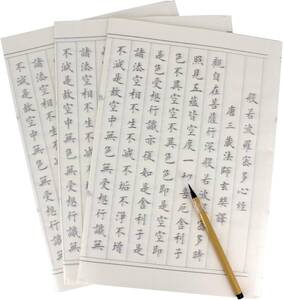 般若波羅蜜多心經
唐三藏法師玄奘譯
觀自在菩薩行深般若波羅蜜多時
照見五蘊皆空度一切苦厄舍利子
色不異空空不異色色即是空空即
是色受想行識亦復如是舍利子是
諸法空相不生不滅不垢不淨不增
不減是故空中無色無受想行識無
諸法空相不生不
不減是故空中無色無受想行識無
諸法空相不生不
不減是故空中無色無受想行識無